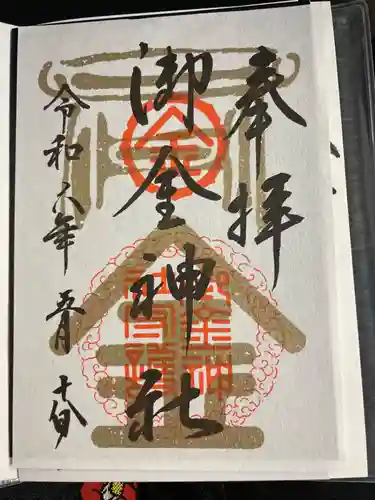 奉拝
御金神社
令和六年 五月 十八日
金